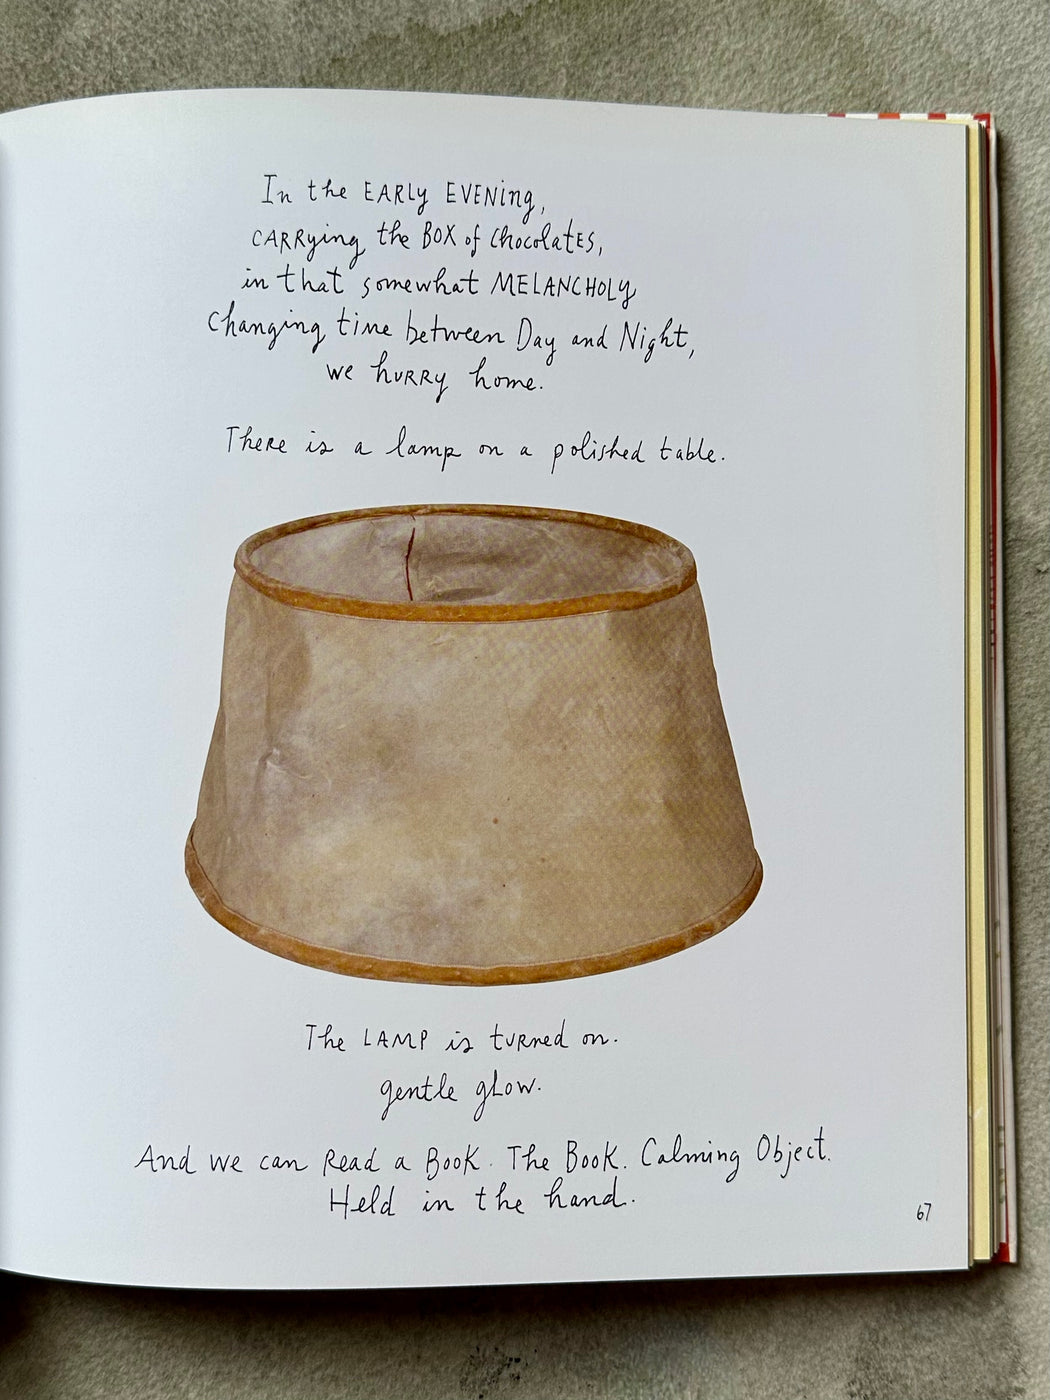 In the EARLy EVENing,
CARRying the BOX of chocolatES,
in that somewhat MELANCHOLy
changing time between Day and Night,
we huRRy home.
TheRe is a lamp on a polished table.
The LAMP is tuRned on.
gentle gLow.
And we can Read a BooK. The BooK. Calming Object.
Held in the hand.
67